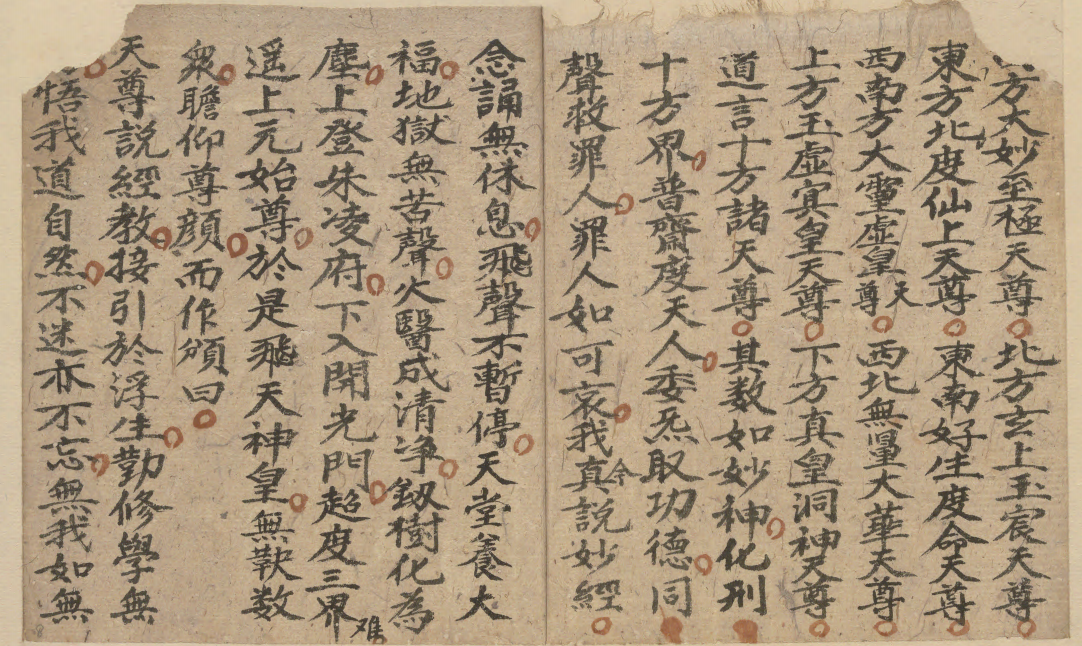 方大妙至極天尊北方玄上玉宸天尊
東方北度仙上天尊東南好生度命天尊
西南方大靈虛皇天尊西北無量大華天尊
上方玉虛㝠皇天尊下方真皇洞神天尊
道言十方諸天尊其数如妙神化刑
十方界普齋度天人委炁取功德同
聲救罪人罪人如可哀我真今說妙經
念誦無休息飛聲不暫停天堂養大
福地獄無苦聲火醫成清净釼樹化為
塵上登朱淩府下入開光門超度三界难
遥上元始尊於是飛天神皇無鞅数
衆瞻仰尊顔而作頌曰
天尊説經教接引於浮生勤修學無
悟我道自然不迷亦不忘無我如無